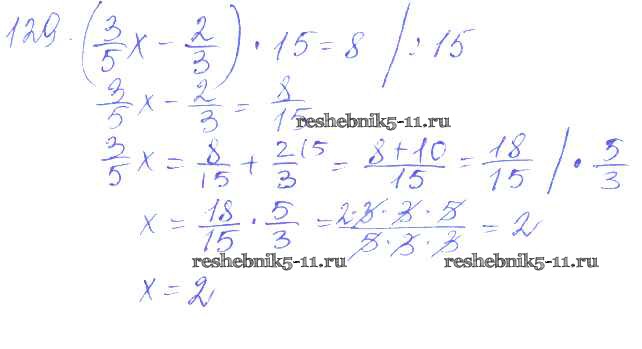 129. (3/5 x − 2/3) · 15 = 8 / : 15
3/5 x − 2/3 = 8/15
reshebnik5-11.ru
3/5 x = 8/15 + 2(5/3 = 8+10/15 = 18/15 / · 5/3
x = 18/15 · 5/3 = 2·3·3·5/5·3·3 = 2
reshebnik5-11.ru reshebnik5-11.ru
x = 2